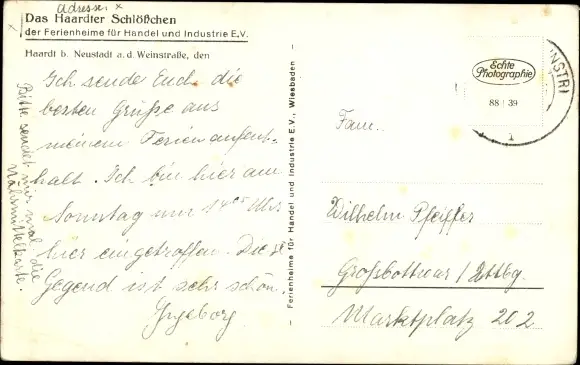 Adresse: x
x Das Haardter Schlößchen
der Ferienheime für Handel und Industrie E.V.
Haardt b. Neustadt a. d. Weinstraße, den
Ich sende Euch die
besten Grüße aus
meinem Ferienaufent-
halt. Ich bin hier am
Sonntag um 14 Uhr
hier eingetroffen. Die
Gegend ist sehr schön.
Ingeborg
Bitte sendet mir mal die
Nährmittelkarte.
Ferienheime für Handel und Industrie E.V., Wiesbaden
Echte
Photographie
88 39
NSTR
1
Fam.
Wilhelm Pfeiffer
Großbottwar / Wttbg.
Marktplatz 202